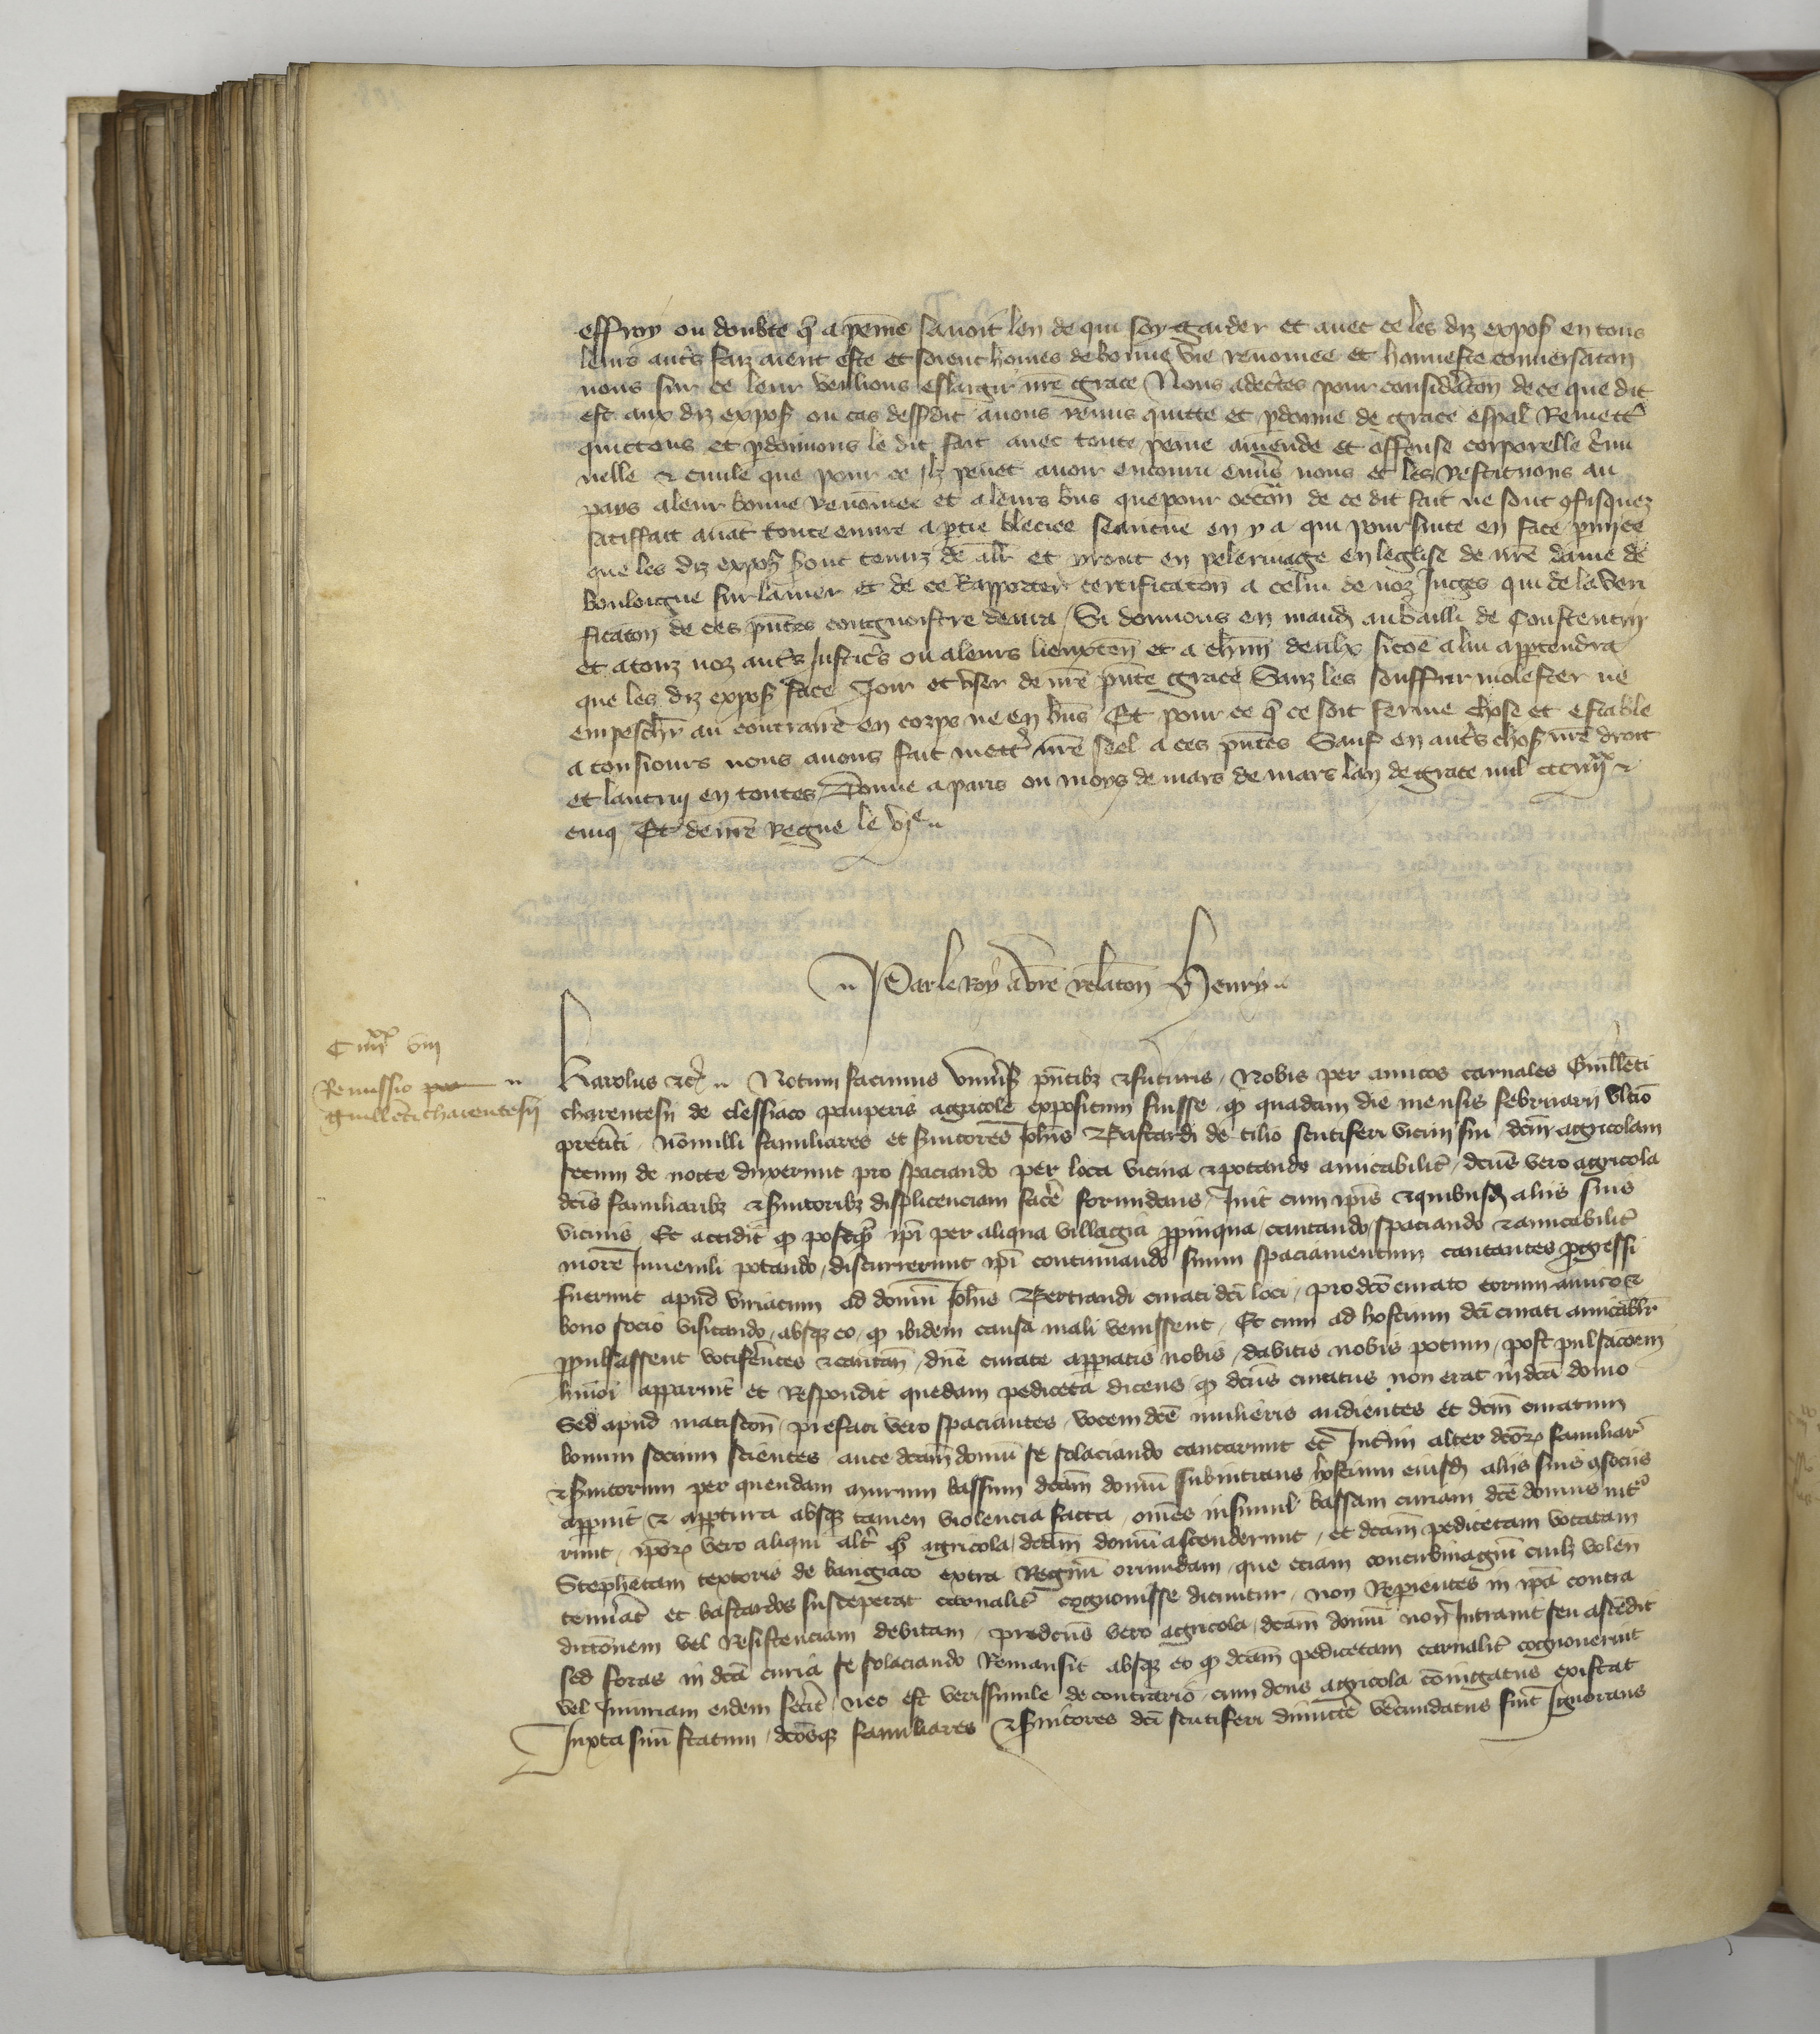 effroy ou doubte q̃ a peine sauoit len de qui soy garder et auec ce les diz expos̃ en tous
leurs autˢ faiz aient este et soient hom̃es de bonne vie renom̃ee et honneste conuersac̃on
nous sur ce leur veulions eslargir nr̃e grace Nous adec̃tes pour considerac̃on de ce que dit
est aux diz expos̃ ou cas dessusdit auons remis quitte et pardonne de grace esp̃al Remett̃
quittons et pardonnons le dit fait auec toute peine amende et offense corporelle crimi
nelle et ciuile que pour ce ilz peuẽt auoir encouru enuers nous et les restituons au
pays a leur bonne renom̃ee et a leurs biẽs que pour occãon de ce dit fait ne sont ꝯfisquez
satiffait auãt toute euure a partie bleciee se aucune en y a qui poursuite en face
que les diz expos̃ sont tenuz de aler et yront en pelerinage en leglise de nr̃e dame de
bouloigne sur la mer et de ce Rapporter certificac̃on a celui de noz Juges qui de la veri
ficac̃on de ces pñtes congnoistre deura / Si donnons en mand̃ au bailli de Constentin
et a touz noz autˢ Justic̃s ou a leurs lieuxten̄ et a chũn deulx sicõe a lui appartendra
que les diz expos̃ face Joir et vser de nr̃e pñte grace Sanz les souffrir molester ne
empeschr̃ au contraire en corps ne en biẽs Et pour ce q̃ ce soit ferme chose et estable
a tousiours nous auons fait mettr̃ nr̃e seel a ces pñtes Sauf en autˢ chos̃ nr̃e droit
et lautruy en toutes Donne a paris ou moys de mars de mars lan de grace mil ccc iiijˣˣ et
cinq Et de nr̃e Regne le vjᵉ
Par le Roy a vr̃e relac̃on Henry
C iiijˣˣ viij
Remissio
Guill̃i charentesij
Karolus etc̃ Notum facimus vniũs̃ pñtibȝ et futuris / Nobis per amicos carnales Guill̃i
charentesij de clessiaco pauperis agricole expositum fuisse qꝫ quadam die mensis februarij vltĩo
pretiti nõnulli familiares et seruitores Joh̃is Bastardi de tilio scutiferi vicini sui dc̃m agricolam
secum de nocte duxerunt pro spaciando per loca vicina et potando amicabilit̃ dc̃us vero agricola
dc̃is familiaribȝ et seruitoribȝ displicenciam fac̃e formidans Juit cum ip̃is et quibusd̃ aliis suis
vicinis Et accidit qꝫ postq̃ ip̃i per aliqua villagia propinqua cantando spaciando et amicabilit̃
more Juuenili potando discurrerunt ip̃i continuando suum spaciamentum cantantes progressi
fuerunt apud viriacum ad domũ Joh̃is Bertrandi curati dc̃i loci pro dc̃o curato eorum amico et
bono socio visitando absqȝ eo qꝫ ibidem causa mali venissent Et cum ad hostium dc̃i curati amicabilr̃
pulsassent vociferẽtes et cantañ dñe curate apperiatis nobis dabitis nobis potum post pulsac̃oem
hm̃oi apparuit et Respondit quedam pediceta dicens qꝫ dc̃us curatus non erat in dc̃a domo
Sed apud matiscoñ prefati vero spaciantes vocem dc̃e mulieris audientes et dc̃m curatum
bonum socium scientes ante dc̃am domũ se solaciando cantarunt etc̃ Jnt̃im alter dc̃oꝝ familiar̃
et seruitorum per quendam murum bassum dc̃am domũ subintrans hostium eiusd̃ aliis suis ꝯsociis
apperuit et appertura absqȝ tamen violencia facta om̃es insimul bassam curiam dc̃e domus int̃
runt ip̃oꝝ vero aliqui alt̃ q̃ agricola dc̃am domũ ascenderunt et dc̃am pedicetam vocatam
Stephetam textoris de baugiaco extra Regnũ oriundam que etiam concubinagiũ cuilȝ volen̄
tenu̾at et bastardos susceperat carnalit̃ cognouisse dicuntur non Reperientes in ip̃a contra
dictõnem vel Resistenciam debitam predc̃us vero agricola dc̃am domũ non Jntrauit seu ascẽdit
sed foras in dc̃a curia se solaciando Remansit absqȝ eo qꝫ dc̃am pedicetam carnalit̃ cognouerit
vel Jniuriam eidem fec̃it nec est verissimile de contrario cum dc̃us agricola cõiugatus existat
Juxta suũ statum dc̃osqȝ familiares et seruitores dc̃i scutiferi dimitt̃e ver̃cundatus fuit Jgnorans